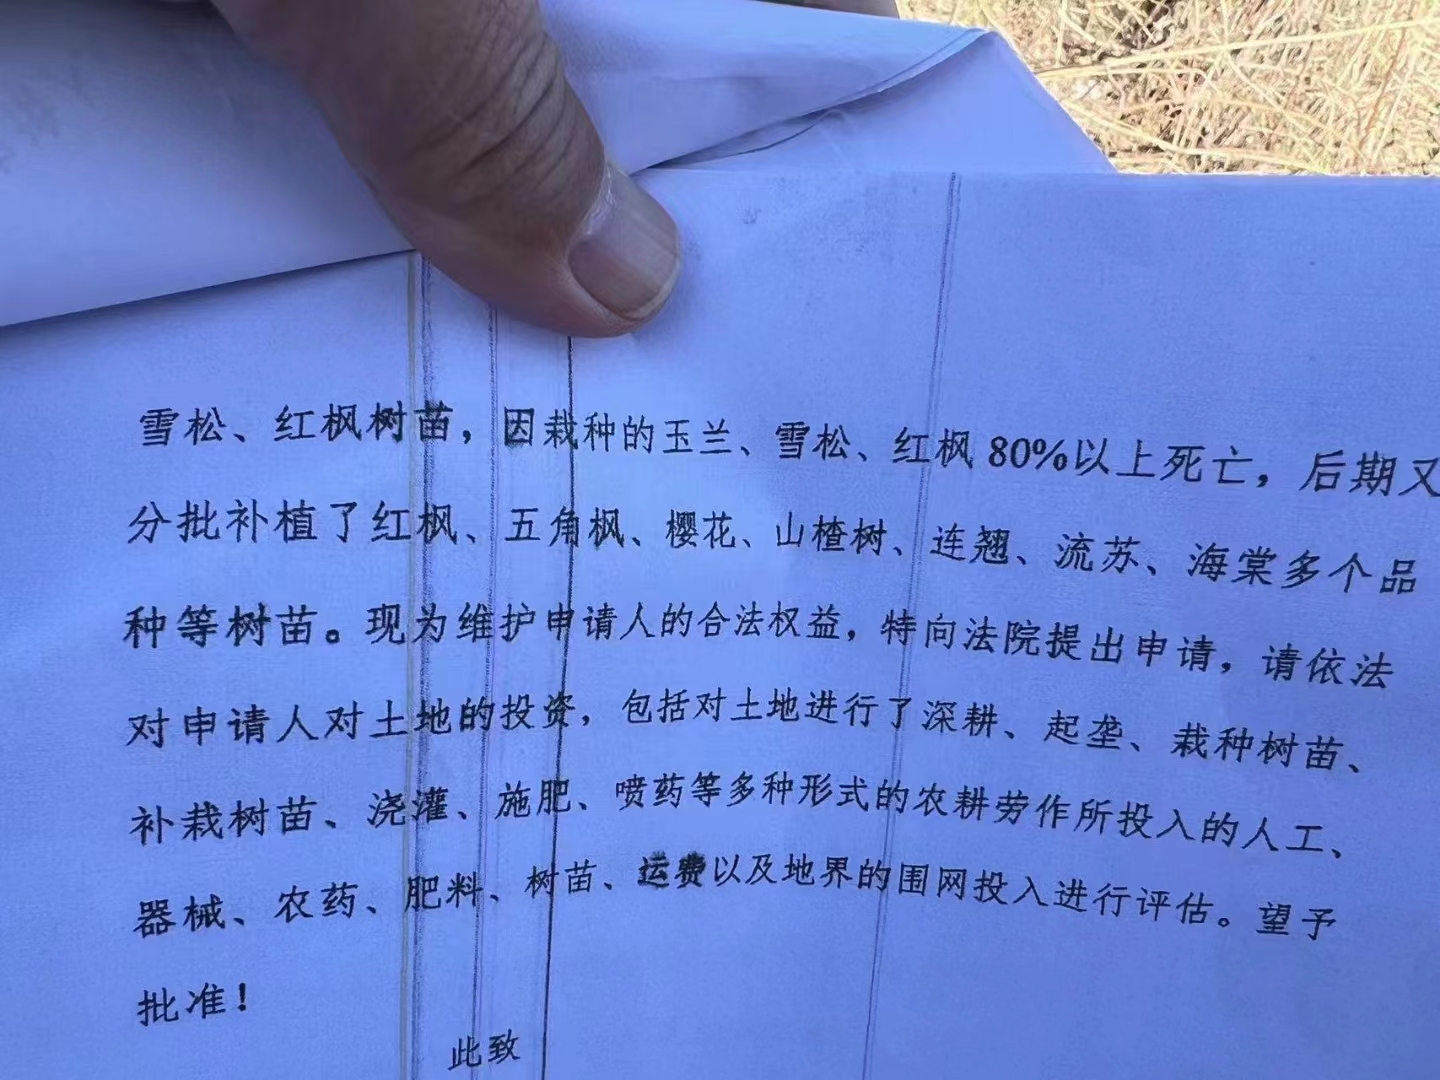 雪松、红枫树苗，因栽种的玉兰、雪松、红枫80%以上死亡，后期又
分批补植了红枫、五角枫、樱花、山楂树、连翘、流苏、海棠多个品
种等树苗。现为维护申请人的合法权益，特向法院提出申请，请依法
对申请人对土地的投资，包括对土地进行了深耕、起垄、栽种树苗、
补栽树苗、浇灌、施肥、喷药等多种形式的农耕劳作所投入的人工、
器械、农药、肥料、树苗、运费以及地界的围网投入进行评估。望予
批准！
此致